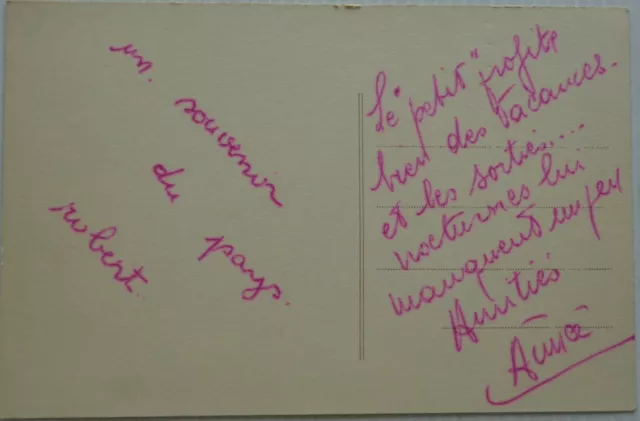 un souvenir
du pays.
robert.
Le "petit" profite
bien des vacances.
et les sorties....
nocturnes lui
manquent un peu
Amitiés